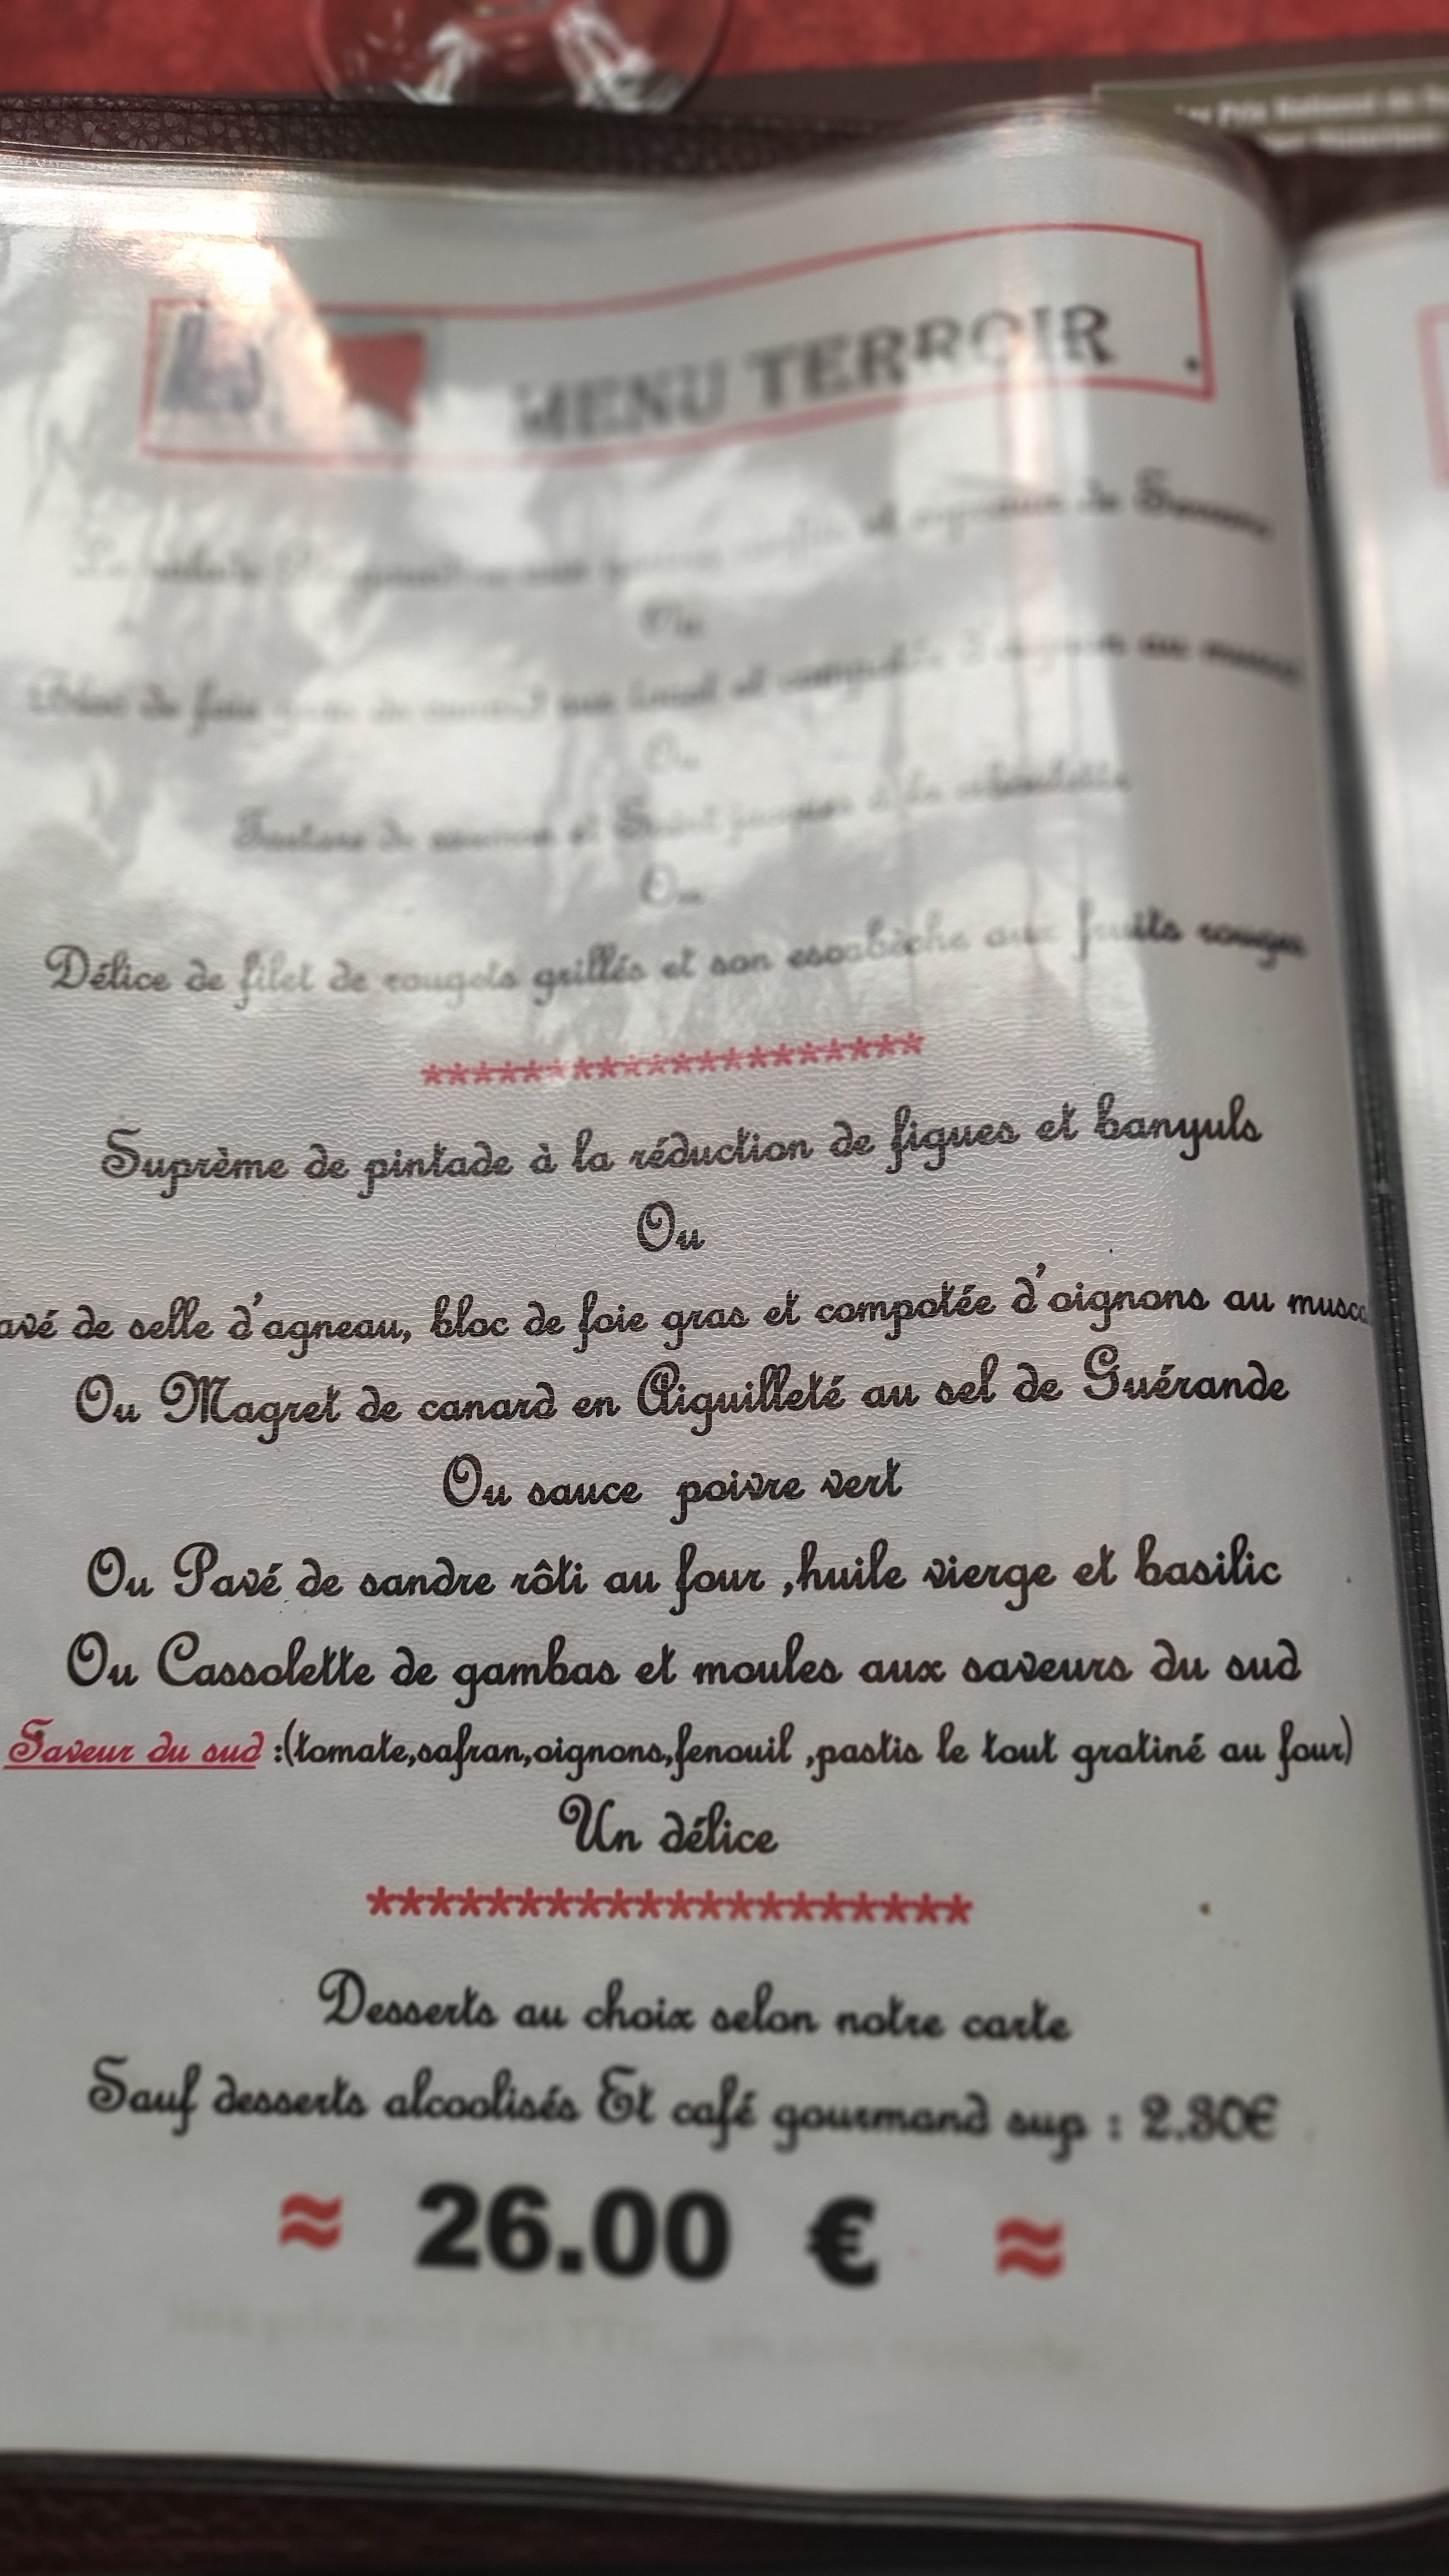 MENU TERROIR
La salade et de
Ou
Bloc de foie gras de canard et compotée d'oignon au
Ou
de saumon et Saint jacques à la ciboulette
Ou
Délice de filet de rougets grillés et son escabèche aux fruits rouges
********************
Suprème de pintade à la réduction de figues et banyuls
Ou
avé de selle d'agneau, bloc de foie gras et compotée d'oignons au musca
Ou Magret de canard en Aiguilleté au sel de Guérande
Ou sauce poivre vert
Ou Pavé de sandre rôti au four ,huile vierge et basilic
Ou Cassolette de gambas et moules aux saveurs du sud
Saveur du sud :(tomate,safran,oignons,fenouil ,pastis le tout gratiné au four)
Un délice
********************
Desserts au choix selon notre carte
Sauf desserts alcoolisés Et café gourmand sup : 2.30€
≈ 26.00 € ≈